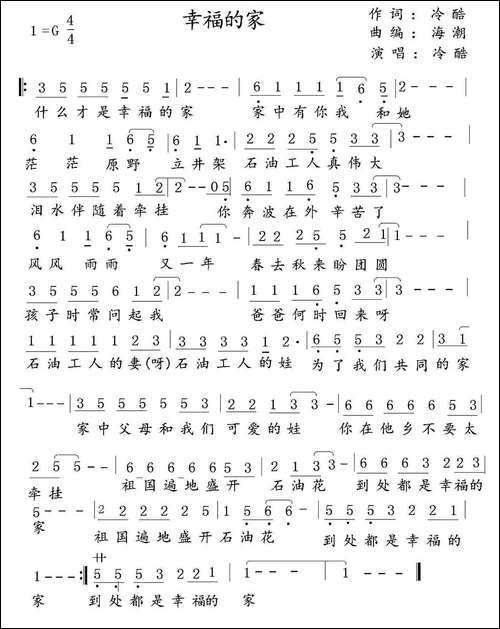 幸福的家
1=G 4/4
作词：冷酷
曲编：海潮
演唱：冷酷
3 5 5 5 5 5 1 | 2 - - - | 6 1 1 1 1 6 5 | 2 - - - |
什么才是幸福的家 家中有你我 和她
6 1 1 6 5 | 6 1 1 · | 2 2 2 5 5 2 3 | 3 - - - |
茫 茫 原野 立井架 石油工人真伟大
3 5 5 5 5 5 1 2 | 2 - - 0 5 | 6 1 1 6 5 3 3 | 3 - - - |
泪水伴随着牵挂 你奔波在外辛苦了
6 1 1 6 5 | 6 1 1 1 - | 2 2 2 5 5 2 1 | 1 - - - |
风风 雨雨 又一年 春去秋来盼团圆
3 5 5 5 6 1 2 | 2 - - - | 6 1 1 6 5 3 3 | 3 - - - |
孩子时常问起我 爸爸何时回来呀
1 1 1 1 1 2 3 · | 3 3 3 3 3 1 2 · | 6 5 5 3 2 2 2 | 3 1 |
石油工人的妻(呀)石油工人的娃 为了我们共同的家
1 - - - | 3 5 5 5 5 5 5 3 | 2 2 1 3 3 - | 6 6 6 6 6 5 6 |
家中父母和我们 可爱的娃 你在他乡不要太
2 5 5 - - | 6 6 6 6 6 5 3 | 2 1 3 3 - | 6 6 6 5 3 2 2 3 |
牵挂 祖国遍地盛开 石油花 到处都是幸福的
5 - - - | 2 2 2 2 2 5 | 1 5 6 6 - | 5 5 5 3 2 2 1 |
家 祖国遍地盛开石油花 到处都是幸福的
1 - - - :| 5 5 5 3 2 2 1 | 1 - - - | - 1 - - - |
家 到处都是幸福的 家